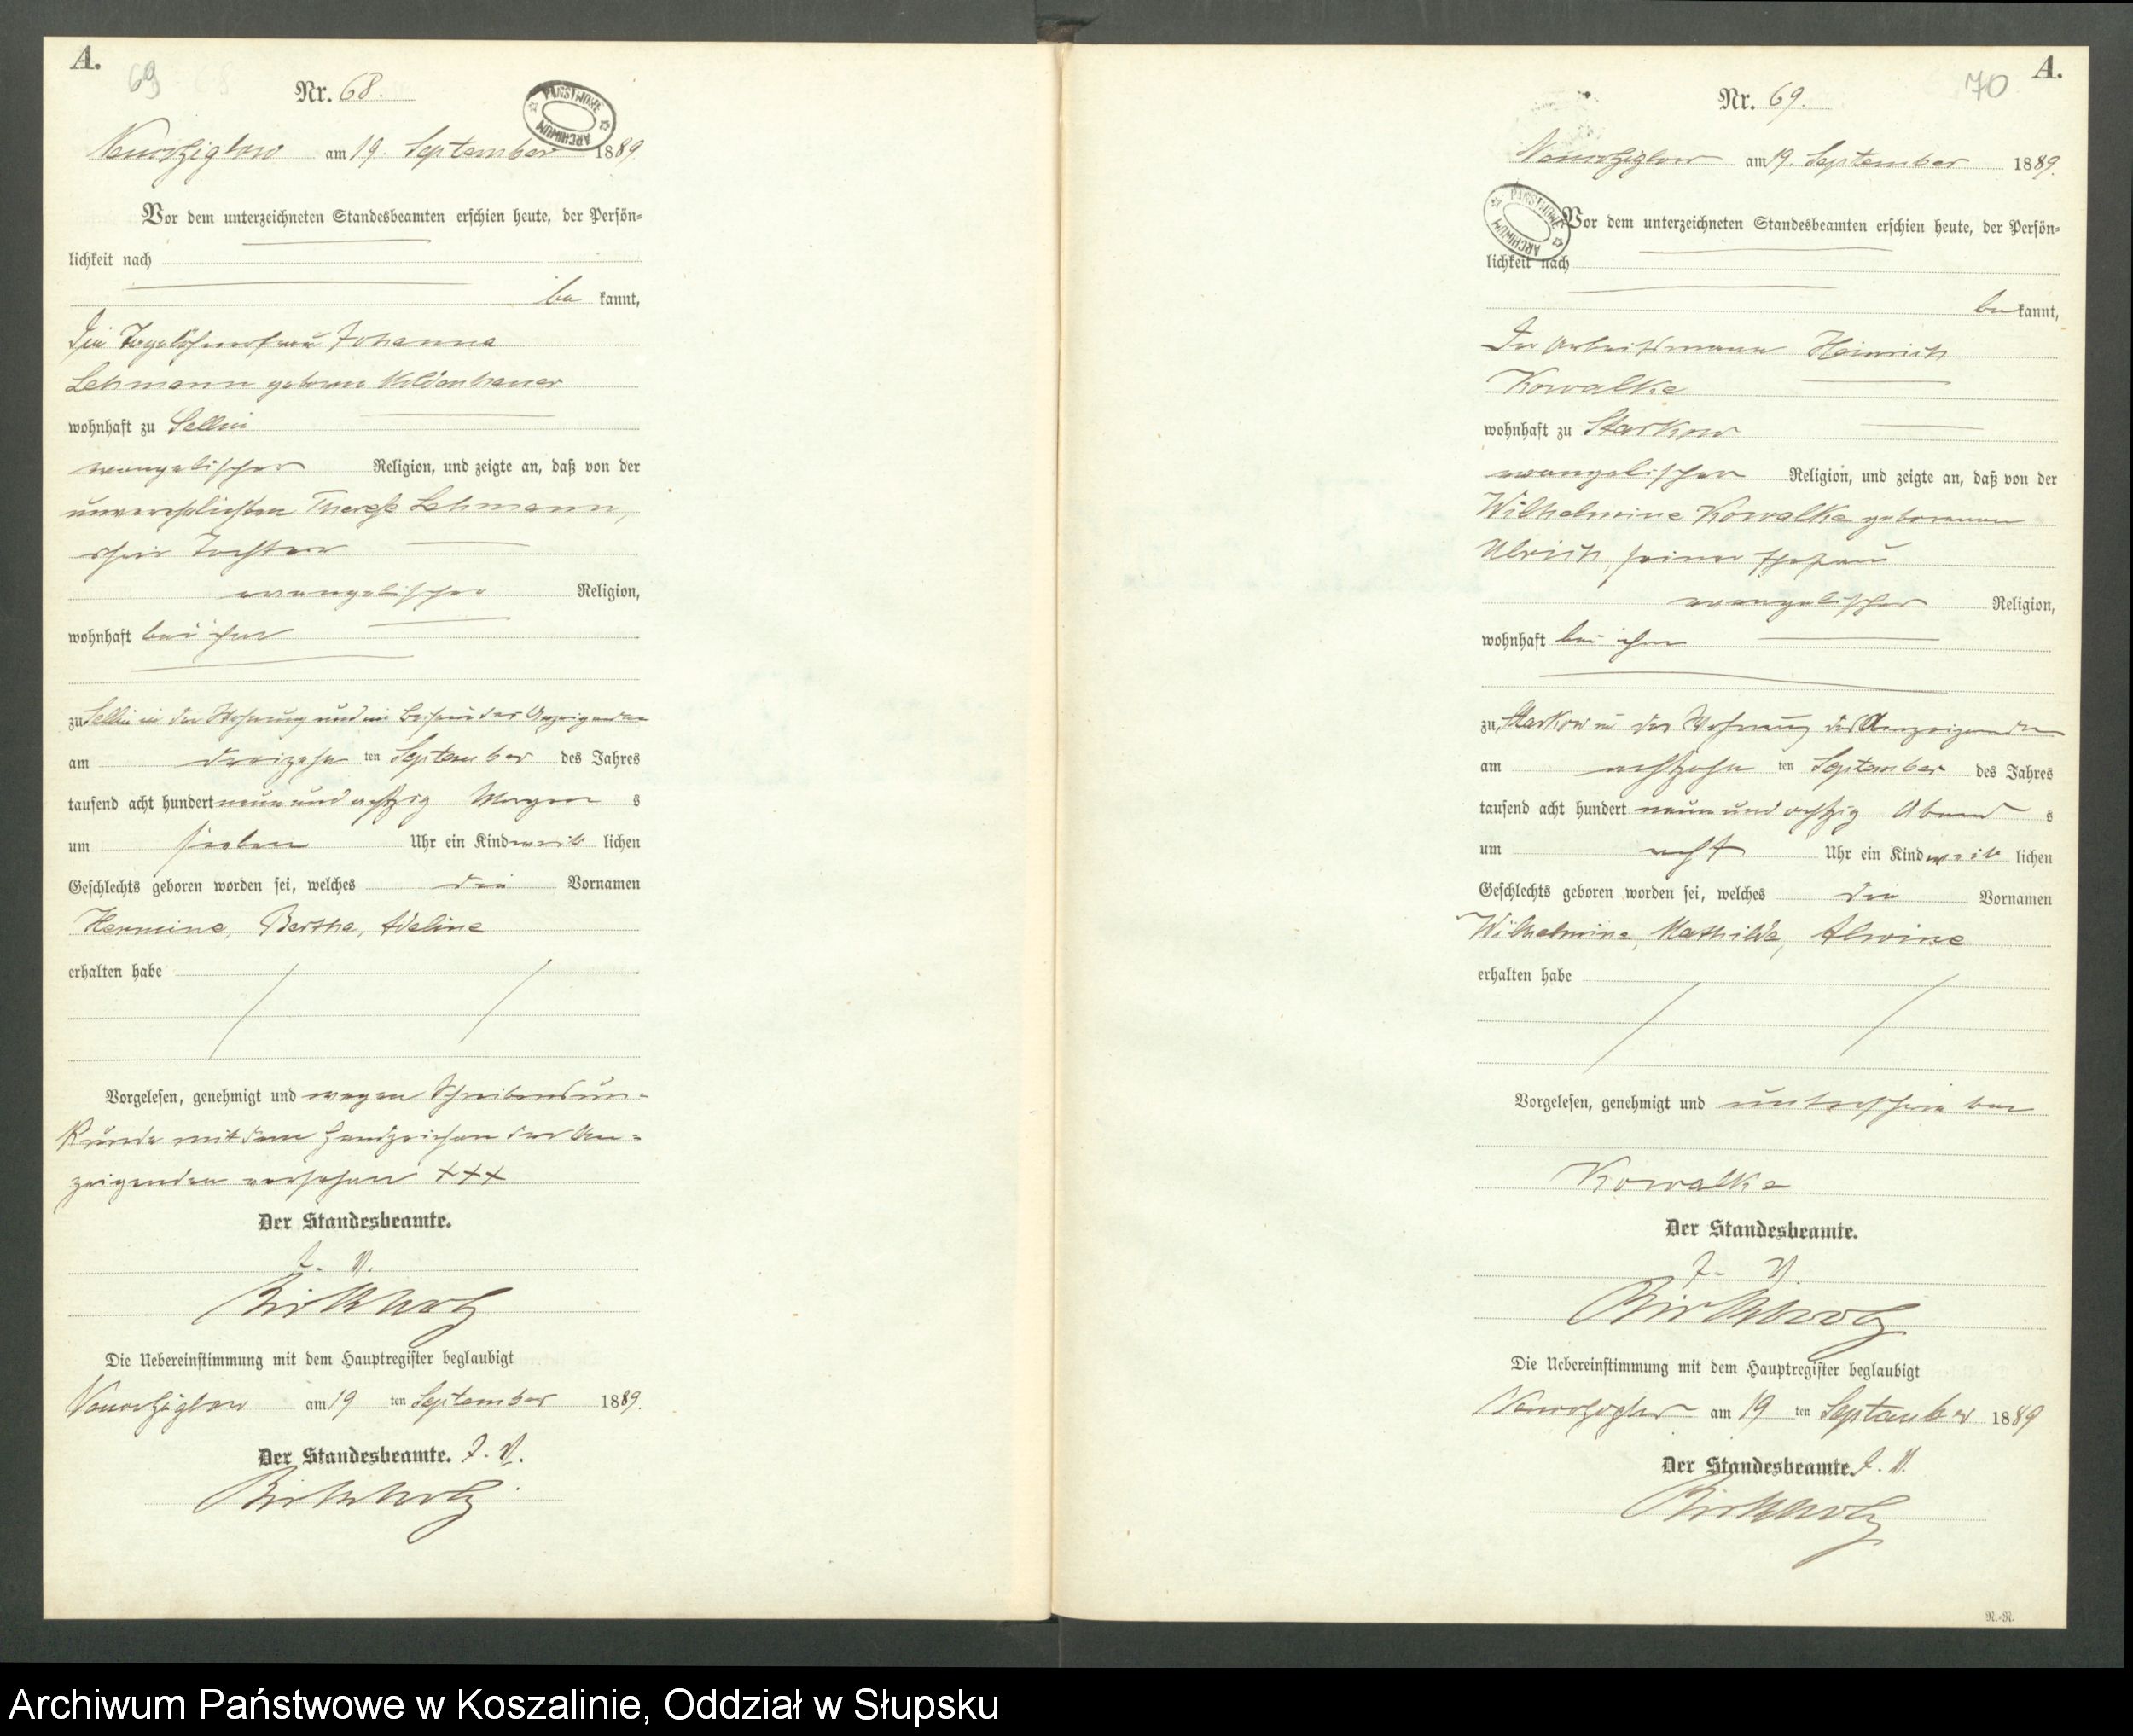 A.
69
Nr. 68.
PAŃSTWOWE ARCHIWUM
am 19. September 1889
Vor dem unterzeichneten Standesbeamten erschien heute, der Persön-
lichkeit nach
be kannt,
die Tagelöhnerfrau Johanna
Lehmann geborene Moldenhauer
wohnhaft zu Sellin
evangelischer Religion, und zeigte an, daß von der
unverehelichten Therese Lehmann,
ihrer Tochter
evangelischer Religion,
wohnhaft bei ihr
zu Sellin in der Wohnung und im Beisein der Anzeigenden
am dreizehn ten September des Jahres
tausend acht hundert neun und achtzig Morgen s
um sieben Uhr ein Kind weib lichen
Geschlechts geboren worden sei, welches die Vornamen
Hermine, Bertha, Adeline
erhalten habe
Vorgelesen, genehmigt und wegen Schreibensun-
kunde mit dem Handzeichen der An-
zeigenden versehen +++
Der Standesbeamte.
J. V.
Birkholz
Die Uebereinstimmung mit dem Hauptregister beglaubigt
am 19 ten September 1889.
Der Standesbeamte. J. V.
Birkholz
A.
70
Nr. 69.
am 19. September 1889.
PAŃSTWOWE ARCHIWUM
Vor dem unterzeichneten Standesbeamten erschien heute, der Persön-
lichkeit nach
be kannt,
der Arbeitsmann Heinrich
Kowalke
wohnhaft zu Starkow
evangelischer Religion, und zeigte an, daß von der
Wilhelmine Kowalke geborenen
Ulrich, seiner Ehefrau
evangelischer Religion,
wohnhaft bei ihm
zu Starkow in der Wohnung des Anzeigenden
am achtzehn ten September des Jahres
tausend acht hundert neun und achtzig Abend s
um acht Uhr ein Kind weib lichen
Geschlechts geboren worden sei, welches die Vornamen
Wilhelmine, Mathilde, Alwine
erhalten habe
Vorgelesen, genehmigt und unterschrieben
Kowalke
Der Standesbeamte.
J. V.
Birkholz
Die Uebereinstimmung mit dem Hauptregister beglaubigt
am 19 ten September 1889
Der Standesbeamte. J. V.
Birkholz
R.-R.
Archiwum Państwowe w Koszalinie, Oddział w Słupsku